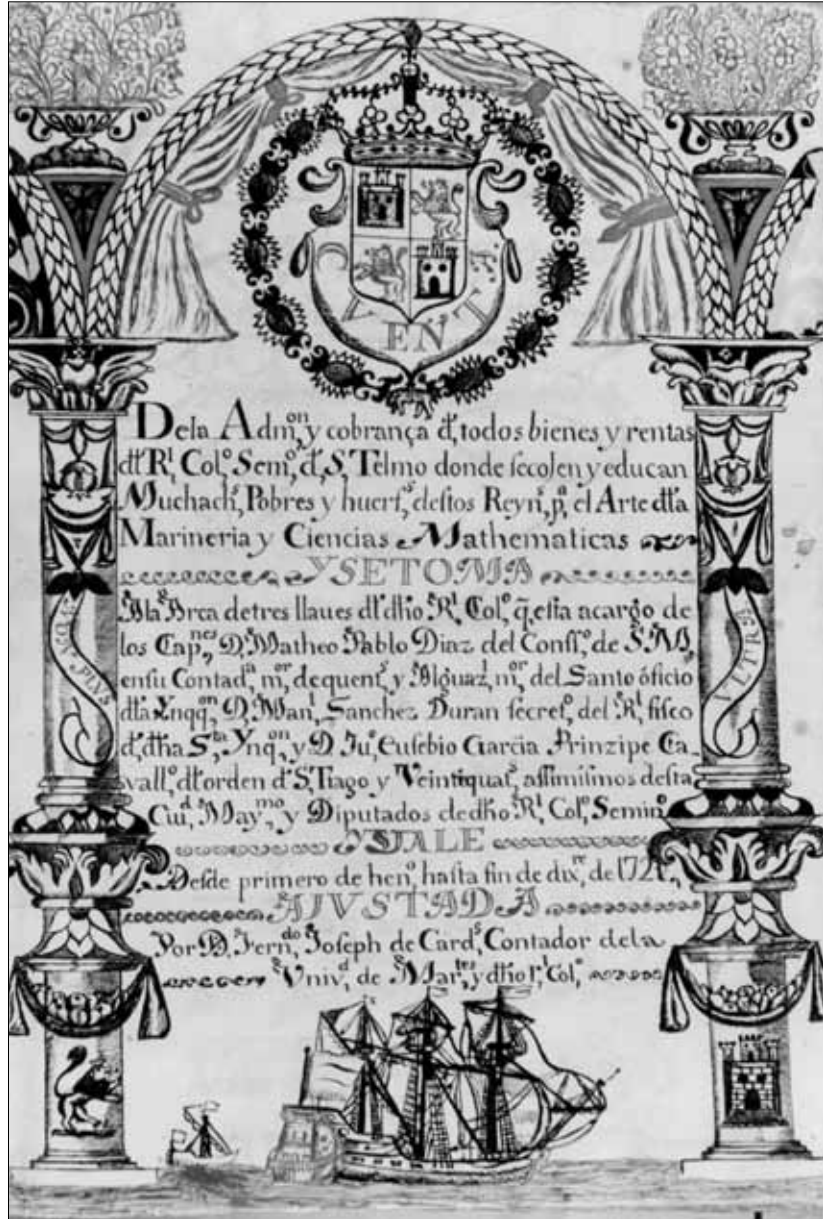 CVENTA
Dela Admᵒⁿ, y cobrança dᵉ, todos bienes y rentas
dˡ Rˡ, Colᵒ, Semᵒ, dᵉ, S, Telmo donde ſecojen y educan
Muchachˢ, Pobres y huerfˢ, deſtos Reynˢ, pᵃ, el Arte dˡa
Marineria y Ciencias Mathematicas
YSETOMA
Ala Arca detres llaues dˡ dħo Rˡ, Colᵒ, q̃, eſta acargo de
los Capⁿᵉˢ, D, Matheo Pablo Diaz del Conſſᵒ, de S, M,
enſu Contadᵃ, mᵒʳ, dequentˢ, y Alguazˡ, mᵒʳ, del Santo óficio
dˡa Ynqqᵒⁿ, D, Manˡ, Sanchez Duran ſecretᵒ, del Rˡ, fiſco
dᵉ, dħa Sᵗᵃ, Ynqᵒⁿ, y D Juᵒ, Euſebio Garcia Prinzipe Ca-
vallᵒ, dˡ orden dᵉ S, Tiago y Veintiquatˢ, aſſimiſmos deſta
Cuiᵈ, Mayᵐᵒ, y Diputados dedħo Rˡ, Colᵒ, Seminᵒ
YSALE
Deſde primero de henᵒ, haſta fin de dixʳᵉ, de
AJVSTADA
Por D, Fernᵈᵒ, Joſeph de Cardˢ, Contador dela
Univᵈ, de Marᵗᵉˢ, y dħo rˡ, Colᵒ,
PLVS
VLTRA